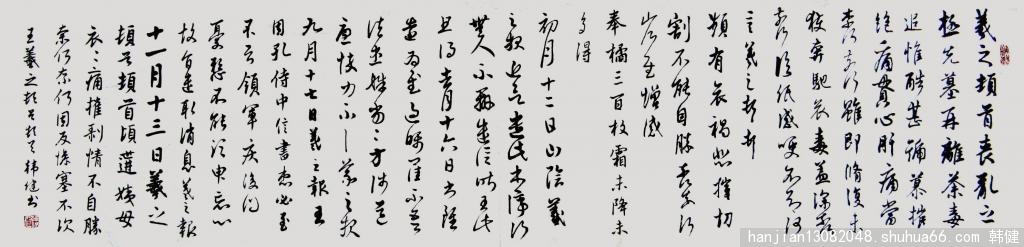 羲之頓首喪亂之
極先墓再離荼毒
追惟酷甚號慕摧
絕痛貫心肝痛當
奈何奈何雖即修復未
獲奔馳哀毒益深
奈何臨紙感哽不知何
言羲之頓首頓首
頻有哀禍悲摧切
割不能自勝奈何奈何
省慰增感
奉橘三百枚霜未降未
可多得
初月十二日山陰羲
之報近欲遣此書停行
無人不辦遣信昨至此
且得去月十六日書雖
遠為慰過囑卿佳不吾
諸患殊勞勞方涉道
憂悴力不一一羲之報
九月十七日羲之報且
因孔侍中信書想必至
不知領軍疾後問
憂懸不能須臾忘心
故旨遣取消息羲之報
十一月十三日羲之
頓首頓首頃遘姨母
哀哀痛摧剝情不自勝
奈何奈何因反慘塞不次
王羲之 韓健書
hanjian13082048. shuhua66. com 韩健